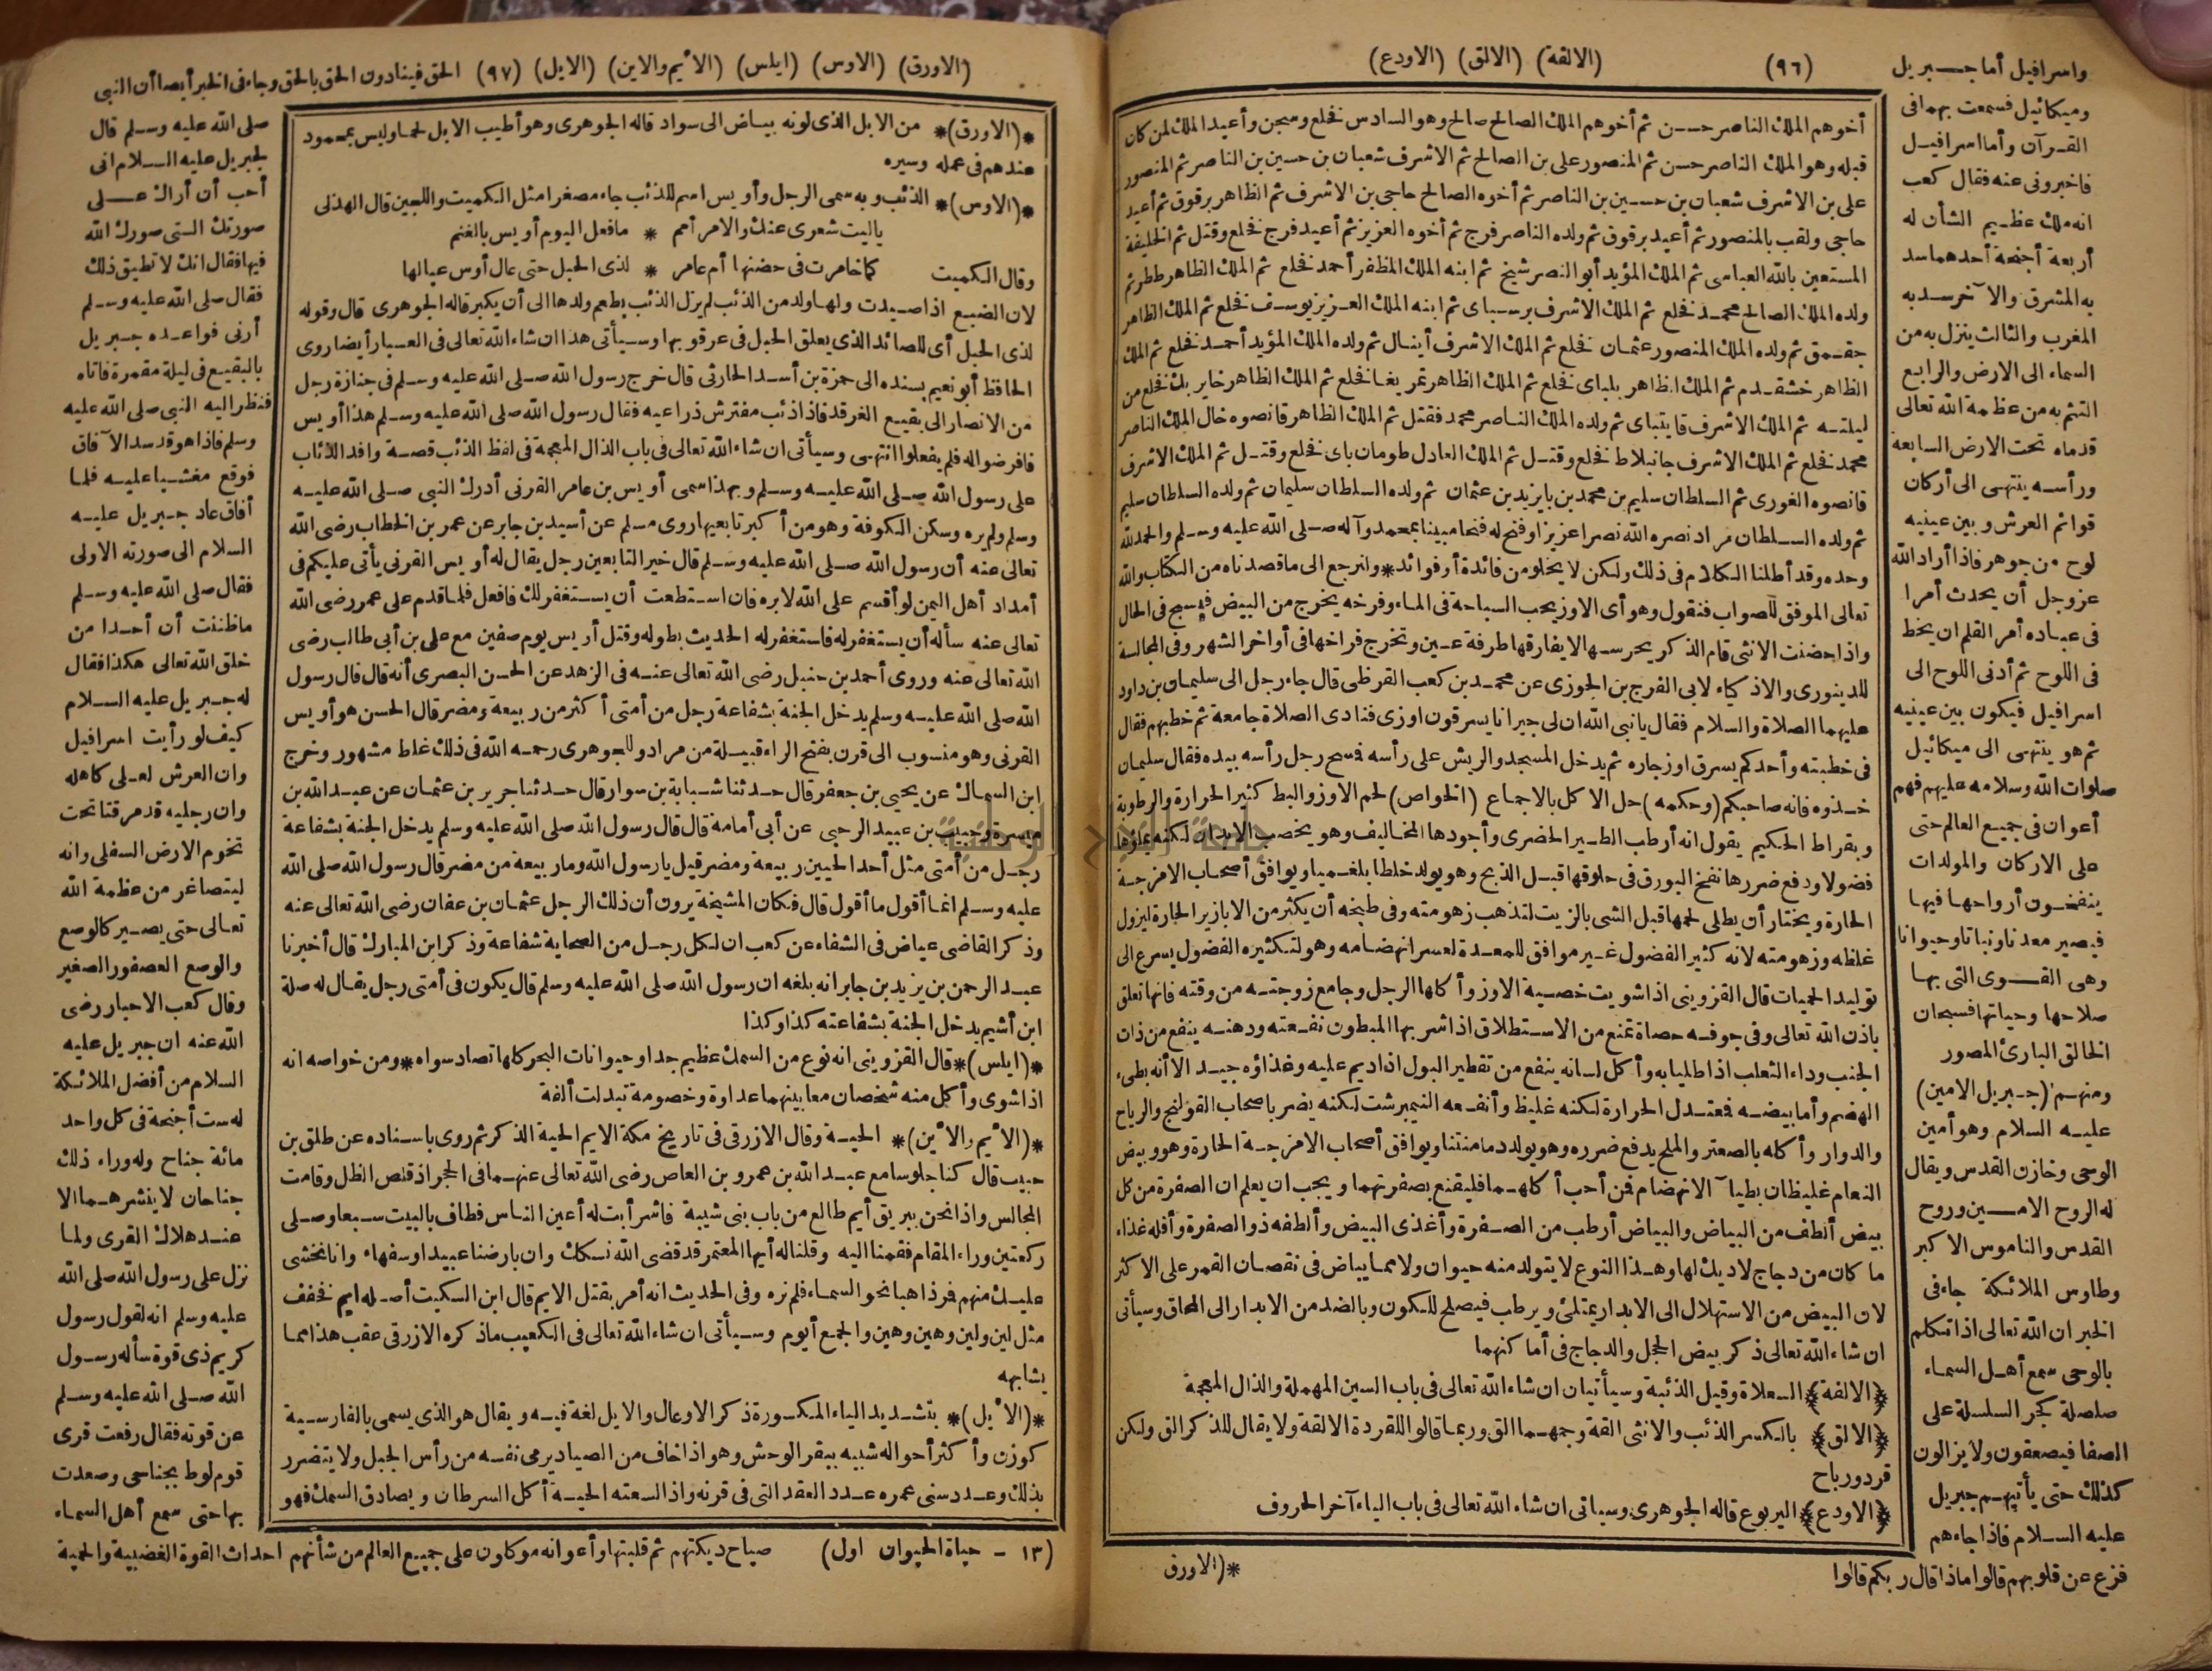 (٩٦) (الالقة) (الالق) (الاودع)
أخوهم الملك الناصر حسن ثم أخوهم الملك الصالح صالح وهو السادس فخلع وسجن وأعيد الملك لمن كان
قبله وهو الملك الناصر حسن ثم المنصور على بن الصالح ثم الاشرف شعبان بن حسين بن الناصر ثم المنصور
على بن الاشرف شعبان بن حسين بن الناصر ثم أخوه الصالح حاجى بن الاشرف ثم الظاهر برقوق ثم أعيد
حاجى ولقب بالمنصور ثم أعيد برقوق ثم ولده الناصر فرج ثم أخوه العزيز ثم أعيد فرج فخلع وقتل ثم الخليفة
المستعين بالله العباسى ثم الملك المؤيد أبو النصر شيخ ثم ابنه الملك المظفر أحمد فخلع ثم الملك الظاهر ططر ثم
ولده الملك الصالح محمد فخلع ثم الملك الاشرف برسباى ثم ابنه الملك العزيز يوسف فخلع ثم الملك الظاهر
جقمق ثم ولده الملك المنصور عثمان فخلع ثم الملك الاشرف أينال ثم ولده الملك المؤيد أحمد فخلع ثم الملك
الظاهر خشقدم ثم الملك الظاهر بلباى فخلع ثم الملك الظاهر تمربغا فخلع ثم الملك الظاهر خاير بك فخلع من
ليلته ثم الملك الاشرف قايتباى ثم ولده الملك الناصر محمد فقتل ثم الملك الظاهر قانصوه خال الملك الناصر
محمد فخلع ثم الملك الاشرف جانبلاط فخلع وقتل ثم الملك العادل طومان باى فخلع وقتل ثم الملك الاشرف
قانصوه الغورى ثم السلطان سليم بن محمد بن بايزيد بن عثمان ثم ولده السلطان سليمان ثم ولده السلطان سليم
ثم ولده السلطان مراد نصره الله نصرا عزيزا وفتح له فتحا مبينا بمحمد وآله صلى الله عليه وسلم والحمد لله
وحده وقد أطلنا الكلام فى ذلك ولكن لا يخلو من فائدة أو فوائد * ولنرجع الى ما قصدناه من الكتاب والله
تعالى الموفق للصواب فنقول وهو أى الاوز يحب السباحة فى الماء وفرخه يخرج من البيض فيسبح فى الحال
واذا حضنت الانثى قام الذكر يحرسها لا يفارقها طرفة عين وتخرج فراخها فى أواخر الشهر وفى المجالسة
للدينورى والاذكياء لابى الفرج بن الجوزى عن محمد بن كعب القرظى قال جاء رجل الى سليمان بن داود
عليهما الصلاة والسلام فقال يا نبى الله ان لى جيرانا يسرقون اوزى فنادى الصلاة جامعة ثم خطبهم فقال
فى خطبته وأحدكم يسرق اوز جاره ثم يدخل المسجد والريش على رأسه فمسح رجل رأسه بيده فقال سليمان
خذوه فانه صاحبكم (وحكمه) حل الاكل بالاجماع (الخواص) لحم الاوز والبط كثير الحرارة والرطوبة
وبقراط الحكيم يقول انه أرطب الطير الحضرى وأجودها المخاليف وهو يخصب الابدان لكنه يملؤها
فضولا ودفع ضررها نفخ البورق فى حلوقها قبل الذبح وهو يولد خلطا بلغميا ويوافق أصحاب الامزجة
الحارة ويختار أن يطلى لحمها قبل الشى بالزيت لتذهب زهومته وفى طبخه أن يكثر من الابازير الحارة ليزول
غلظه وزهومته لانه كثير الفضول غير موافق للمعدة لعسر انهضامه وهو لتكثيره الفضول يسرع الى
توليد الحميات قال القزوينى اذا شويت خصية الاوز وأكلها الرجل وجامع زوجته من وقته فانها تعلق
باذن الله تعالى وفى جوفه حصاة تمنع من الاستطلاق اذا شربها المبطون نفعته ودهنه ينفع من ذات
الجنب وداء الثعلب اذا طليا به وأكل لسانه ينفع من تقطير البول اذا ديم عليه وغذاؤه جيد الا أنه بطىء
الهضم وأما بيضه فمعتدل الحرارة لكنه غليظ وأنفعه النيمبرشت لكنه يضر باصحاب القولنج والرياح
والدوار وأكله بالصعتر والملح يدفع ضرره وهو يولد دما منتنا ويوافق أصحاب الامزجة الحارة وهو وبيض
النعام غليظان بطيآ الانهضام فمن أحب أكلهما فليقنع بصفرتهما ويجب ان يعلم ان الصفرة من كل
بيض ألطف من البياض والبياض أرطب من الصفرة وأغذى البيض وألطفه ذو الصفرة وأقله غذاء
ما كان من دجاج لا ديك لها وهذا النوع لا يتولد منه حيوان ولا مما يباض فى نقصان القمر على الاكثر
لان البيض من الاستهلال الى الابدار يمتلئ ويرطب فيصلح للكون وبالضد من الابدار الى المحاق وسيأتى
ان شاء الله تعالى ذكر بيض الحجل والدجاج فى أماكنهما
(الالقة) السعلاة وقيل الذئبة وسيأتيان ان شاء الله تعالى فى باب السين المهملة والذال المعجمة
(الالق) بالكسر الذئب والانثى القة وجمعهما الق وربما قالوا للقردة الالقة ولا يقال للذكر الق ولكن
قرد ورباح
(الاودع) اليربوع قاله الجوهرى وسيأتى ان شاء الله تعالى فى باب الياء آخر الحروف
*(الاورق
واسرافيل أما جبريل
وميكائيل فسمعت بهما فى
القرآن وأما اسرافيل
فاخبرونى عنه فقال كعب
انه ملك عظيم الشأن له
أربعة أجنحة أحدهما سد
به المشرق والآخر سد به
المغرب والثالث ينزل به من
السماء الى الارض والرابع
التثم به من عظمة الله تعالى
قدماه تحت الارض السابعة
ورأسه ينتهى الى أركان
قوائم العرش وبين عينيه
لوح من جوهر فاذا أراد الله
عز وجل أن يحدث أمرا
فى عباده أمر القلم ان يخط
فى اللوح ثم أدنى اللوح الى
اسرافيل فيكون بين عينيه
ثم هو ينتهى الى ميكائيل
صلوات الله وسلامه عليهم فهم
أعوان فى جميع العالم حتى
على الاركان والمولدات
ينفخون أرواحها فيها
فيصير معدنا ونباتا وحيوانا
وهى القوى التى بها
صلاحها وحياتها فسبحان
الخالق البارئ المصور
ومنهم (جبريل الامين)
عليه السلام وهو أمين
الوحى وخازن القدس ويقال
له الروح الامين وروح
القدس والناموس الاكبر
وطاوس الملائكة جاء فى
الخبر ان الله تعالى اذا تكلم
بالوحى سمع أهل السماء
صلصلة كجر السلسلة على
الصفا فيصعقون ولا يزالون
كذلك حتى يأتيهم جبريل
عليه السلام فاذا جاءهم
فزع عن قلوبهم قالوا ماذا قال ربكم قالوا
(الاورق) (الاوس) (ايلس) (الايم والاين) (الايل) (٩٧) الحق فينادون الحق بالحق وجاء فى الخبر أيضا أن النبى
*(الاورق)* من الابل الذى لونه بياض الى سواد قاله الجوهرى وهو أطيب الابل لحما وليس بمحمود
عندهم فى عمله وسيره
*(الاوس)* الذئب وبه سمى الرجل وأويس اسم للذئب جاء مصغرا مثل الكميت واللجين قال الهذلى
ياليت شعرى عنك والامر أمم * ما فعل اليوم أويس بالغنم
وقال الكميت كما خامرت فى حضنها أم عامر * لذى الحبل حتى عال أوس عيالها
لان الضبع اذا صيدت ولها ولد من الذئب لم يزل الذئب يطعم ولدها الى أن يكبر قاله الجوهرى قال وقوله
لذى الحبل أى للصائد الذى يعلق الحبل فى عرقوبها وسيأتى هذا ان شاء الله تعالى فى العسبار أيضا روى
الحافظ أبو نعيم بسنده الى حمزة بن أسد الحارثى قال خرج رسول الله صلى الله عليه وسلم فى جنازة رجل
من الانصار الى بقيع الغرقد فاذا ذئب مفترش ذراعيه فقال رسول الله صلى الله عليه وسلم هذا أويس
فافرضوا له فلم يفعلوا انتهى وسيأتى ان شاء الله تعالى فى باب الذال المعجمة فى لفظ الذئب قصة وافد الذئاب
على رسول الله صلى الله عليه وسلم وبهذا سمى أويس بن عامر القرنى أدرك النبى صلى الله عليه
وسلم ولم يره وسكن الكوفة وهو من أكبر تابعيها روى مسلم عن أسيد بن جابر عن عمر بن الخطاب رضى الله
تعالى عنه أن رسول الله صلى الله عليه وسلم قال خير التابعين رجل يقال له أويس القرنى يأتى عليكم فى
أمداد أهل اليمن لو أقسم على الله لابره فان استطعت أن يستغفر لك فافعل فلما قدم على عمر رضى الله
تعالى عنه سأله أن يستغفر له فاستغفر له الحديث بطوله وقتل أويس يوم صفين مع على بن أبى طالب رضى
الله تعالى عنه وروى أحمد بن حنبل رضى الله تعالى عنه فى الزهد عن الحسن البصرى أنه قال قال رسول
الله صلى الله عليه وسلم يدخل الجنة بشفاعة رجل من أمتى أكثر من ربيعة ومضر قال الحسن هو أويس
القرنى وهو منسوب الى قرن بفتح الراء قبيلة من مراد وللجوهرى رحمه الله فى ذلك غلط مشهور وخرج
ابن السماك عن يحيى بن جعفر قال حدثنا شبابة بن سوار قال حدثنا جرير بن عثمان عن عبد الله بن
ميسرة وحبيب بن عبيد الرحبى عن أبى أمامة قال قال رسول الله صلى الله عليه وسلم يدخل الجنة بشفاعة
رجل من أمتى مثل أحد الحيين ربيعة ومضر قيل يا رسول الله وما ربيعة من مضر قال رسول الله صلى الله
عليه وسلم انما أقول ما أقول قال فكان المشيخة يرون أن ذلك الرجل عثمان بن عفان رضى الله تعالى عنه
وذكر القاضى عياض فى الشفاء عن كعب ان لكل رجل من الصحابة شفاعة وذكر ابن المبارك قال أخبرنا
عبد الرحمن بن يزيد بن جابر انه بلغه ان رسول الله صلى الله عليه وسلم قال يكون فى أمتى رجل يقال له صلة
ابن أشيم يدخل الجنة بشفاعته كذا وكذا
*(ايلس)* قال القزوينى انه نوع من السمك عظيم جدا وحيوانات البحر كلها تصاد سواه * ومن خواصه انه
اذا شوى وأكل منه شخصان معا بينهما عداوة وخصومة تبدلت ألفة
*(الايم والاين)* الحية وقال الازرقى فى تاريخ مكة الايم الحية الذكر ثم روى باسناده عن طلق بن
حبيب قال كنا جلوسا مع عبد الله بن عمرو بن العاص رضى الله تعالى عنهما فى الحجر اذ قلص الظل وقامت
المجالس واذا نحن ببريق أيم طالع من باب بنى شيبة فاشرأبت له أعين الناس فطاف بالبيت سبعا وصلى
ركعتين وراء المقام فقمنا اليه وقلنا له أيها المعتمر قد قضى الله نسكك وان بارضنا عبيدا وسفهاء وانا نخشى
عليك منهم فمر ذاهبا نحو السماء فلم نره وفى الحديث انه أمر بقتل الايم قال ابن السكيت أصله ايم فخفف
مثل لين ولين وهين وهين والجمع أيوم وسيأتى ان شاء الله تعالى فى الكعيب ما ذكره الازرقى عقب هذا مما
يشابهه
*(الايل)* بتشديد الياء المكسورة ذكر الاوعال والايل لغة فيه ويقال هو الذى يسمى بالفارسية
كوزن وأكثر أحواله شبيه ببقر الوحش وهو اذا خاف من الصياد يرمى نفسه من رأس الجبل ولا يتضرر
بذلك وعدد سنى عمره عدد العقد التى فى قرنه واذا لسعته الحية أكل السرطان ويصادق السمك فهو
صلى الله عليه وسلم قال
لجبريل عليه السلام انى
أحب أن أراك على
صورتك التى صورك الله
فيها فقال انك لا تطيق ذلك
فقال صلى الله عليه وسلم
أرنى فواعده جبريل
بالبقيع فى ليلة مقمرة فاتاه
فنظر اليه النبى صلى الله عليه
وسلم فاذا هو قد سد الآفاق
فوقع مغشيا عليه فلما
أفاق عاد جبريل عليه
السلام الى صورته الاولى
فقال صلى الله عليه وسلم
ما ظننت أن أحدا من
خلق الله تعالى هكذا فقال
له جبريل عليه السلام
كيف لو رأيت اسرافيل
وان العرش لعلى كاهله
وان رجليه قد مرقتا تحت
تخوم الارض السفلى وانه
ليتصاغر من عظمة الله
تعالى حتى يصير كالوصع
والوصع العصفور الصغير
وقال كعب الاحبار رضى
الله عنه ان جبريل عليه
السلام من أفضل الملائكة
له ست أجنحة فى كل واحد
مائة جناح وله وراء ذلك
جناحان لا ينشرهما الا
عند هلاك القرى ولما
نزل على رسول الله صلى الله
عليه وسلم انه لقول رسول
كريم ذى قوة سأله رسول
الله صلى الله عليه وسلم
عن قوته فقال رفعت قرى
قوم لوط بجناحى وصعدت
بها حتى سمع أهل السماء
صياح ديكتهم ثم قلبتها وأعوانه موكلون على جميع العالم من شأنهم احداث القوة الغضبية والحمية
(١٣ - حياة الحيوان اول)